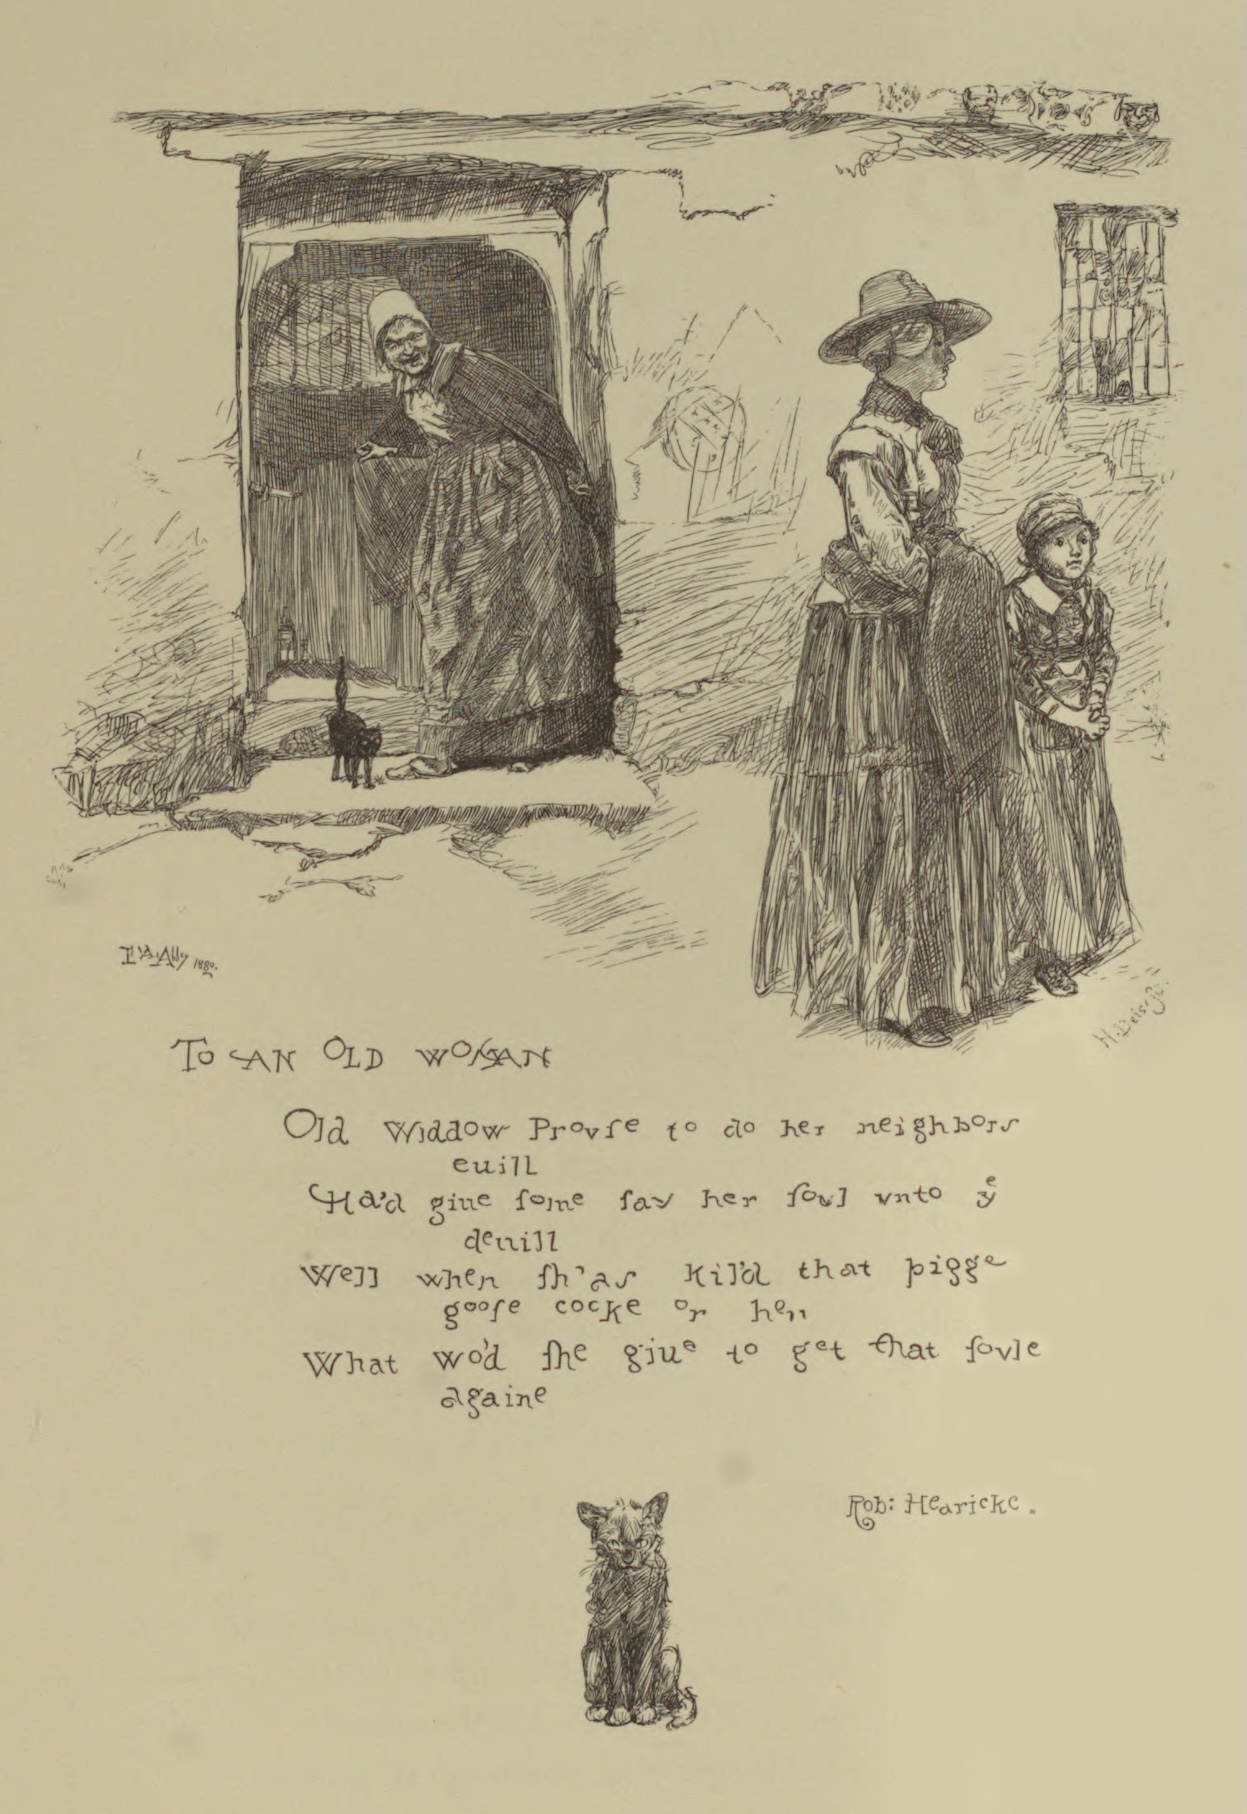 E·A·Abbey 1880.
H. Deis. Sc.
To an Old woman
Old Widdow Provſe to do her neighbors
euill
Ha'd giue ſome ſay her ſoul vnto yͤ
deuill
Well when ſh'as Kil'd that pigge
gooſe cocke or hen
What wo'd ſhe giue to get that ſovle
againe
Rob: Hearicke.